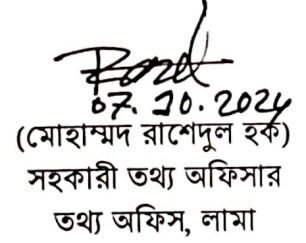 07.10.2024
(মোহাম্মদ রাশেদুল হক)
সহকারী তথ্য অফিসার
তথ্য অফিস, লামা